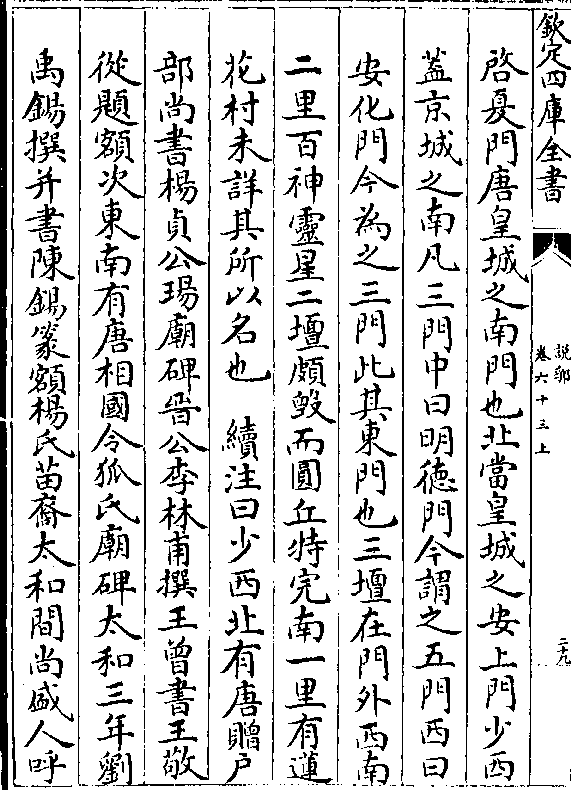 欽定四庫全書
說郛
卷六十三上
二十九
啓夏門唐皇城之南門也北當皇城之安上門少西
蓋京城之南凡三門中曰明德門今謂之五門西曰
安化門今為之三門此其東門也三壇在門外西南
二里百神靈星二壇頗毀而圓丘特完南一里有蓮
花村未詳其所以名也　續注曰少西北有唐贈户
部尚書楊貞公瑒廟碑晉公李林甫撰王曾書王敬
從題額次東南有唐相國令狐氏廟碑太和三年劉
禹錫撰并書陳錫篆額楊氏苗裔太和間尚盛人呼